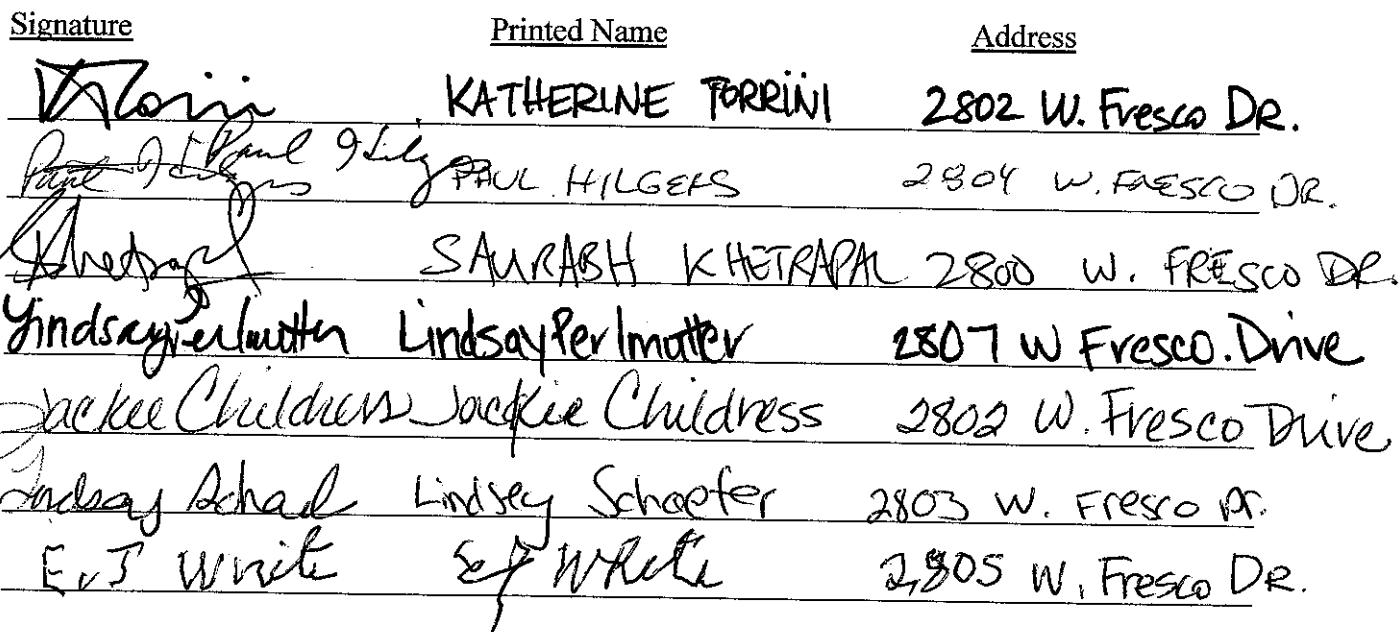 Signature Printed Name Address
KATHERINE TORRINI 2802 W. Fresco DR.
Paul Hilgers PAUL HILGERS 2804 W. FRESCO DR.
Khetrapal SAURABH KHETRAPAL 2800 W. FRESCO DR.
Lindsay Perlmutter Lindsay Perlmutter 2807 W Fresco. Drive
Jackie Childress Jackie Childress 2802 W. Fresco Drive
Lindsey Schaefer 2803 W. Fresco Dr.
E.J White EJ White 2805 W. Fresco DR.